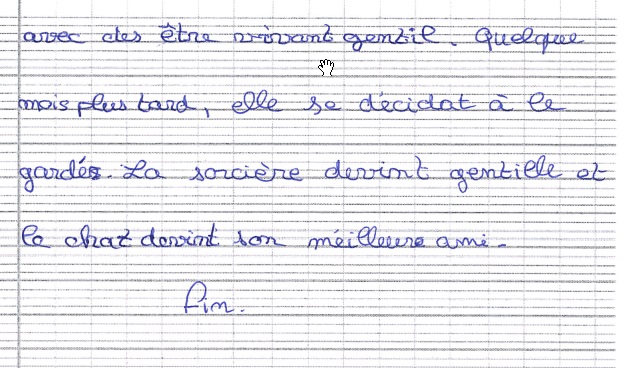 avec des être vivant gentil. Quelque
mois plus tard, elle se décidat à le
gardés. La sorcière devint gentille et
le chat devint son méilleure ami.
Fin.